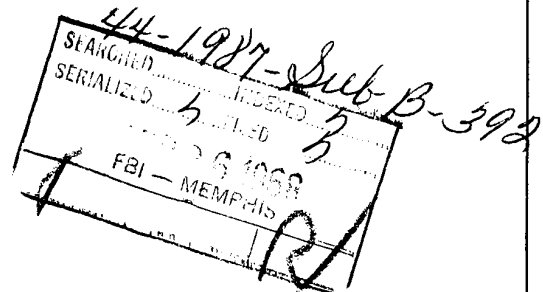 44-1987-Sub-B-392
SEARCHED INDEXED
SERIALIZED FILED
1968
FBI — MEMPHIS